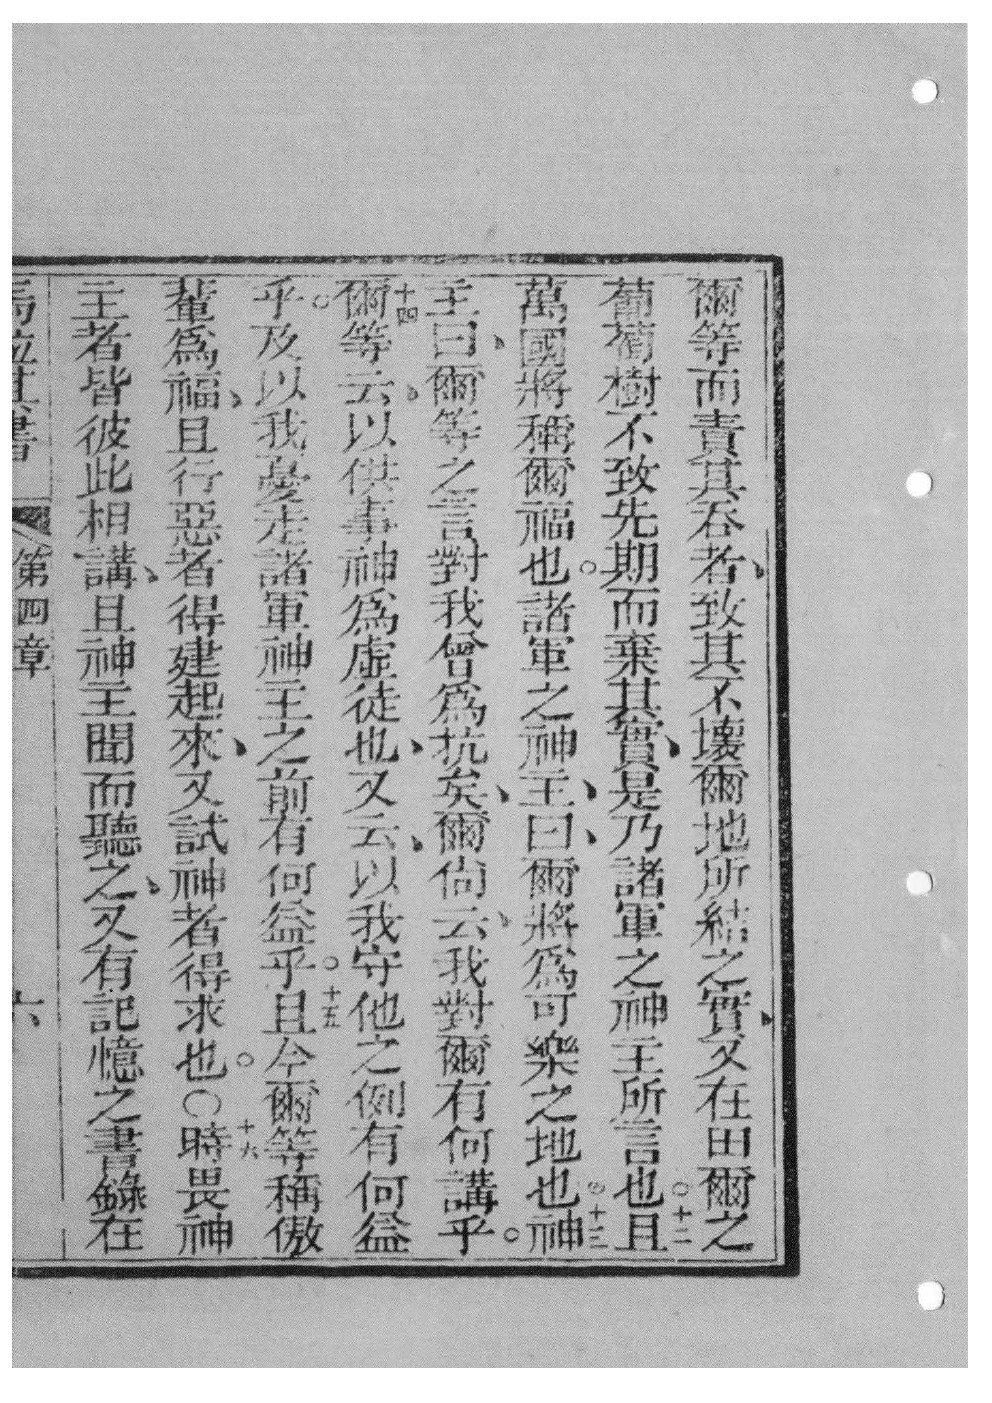 爾等而責其吞者、致其不壞爾地所結之實、又在田爾之
葡萄樹不致先期而棄其實、是乃諸軍之神主所言也。十二且
萬國將稱爾福也。諸軍之神主、曰、爾將爲可樂之地也。十三神
主曰、爾等之言對我曾爲抗矣、爾尙云、我對爾有何講乎。
十四爾等云、以供事神爲虛徒也、又云、以我守他之例有何益
乎。及以我憂走諸軍神主之前有何益乎。十五且今爾等稱傲
輩爲福、且行惡者得建起來、又試神者得求也。○十六時畏神
主者皆彼此相講、且神主聞而聽之、又有記憶之書錄在
書 第四章 六